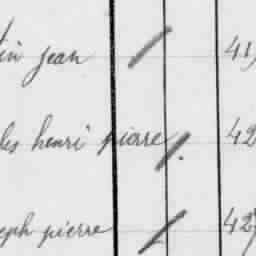 tin jean 41
les henri pierre 42
eph pierre 42